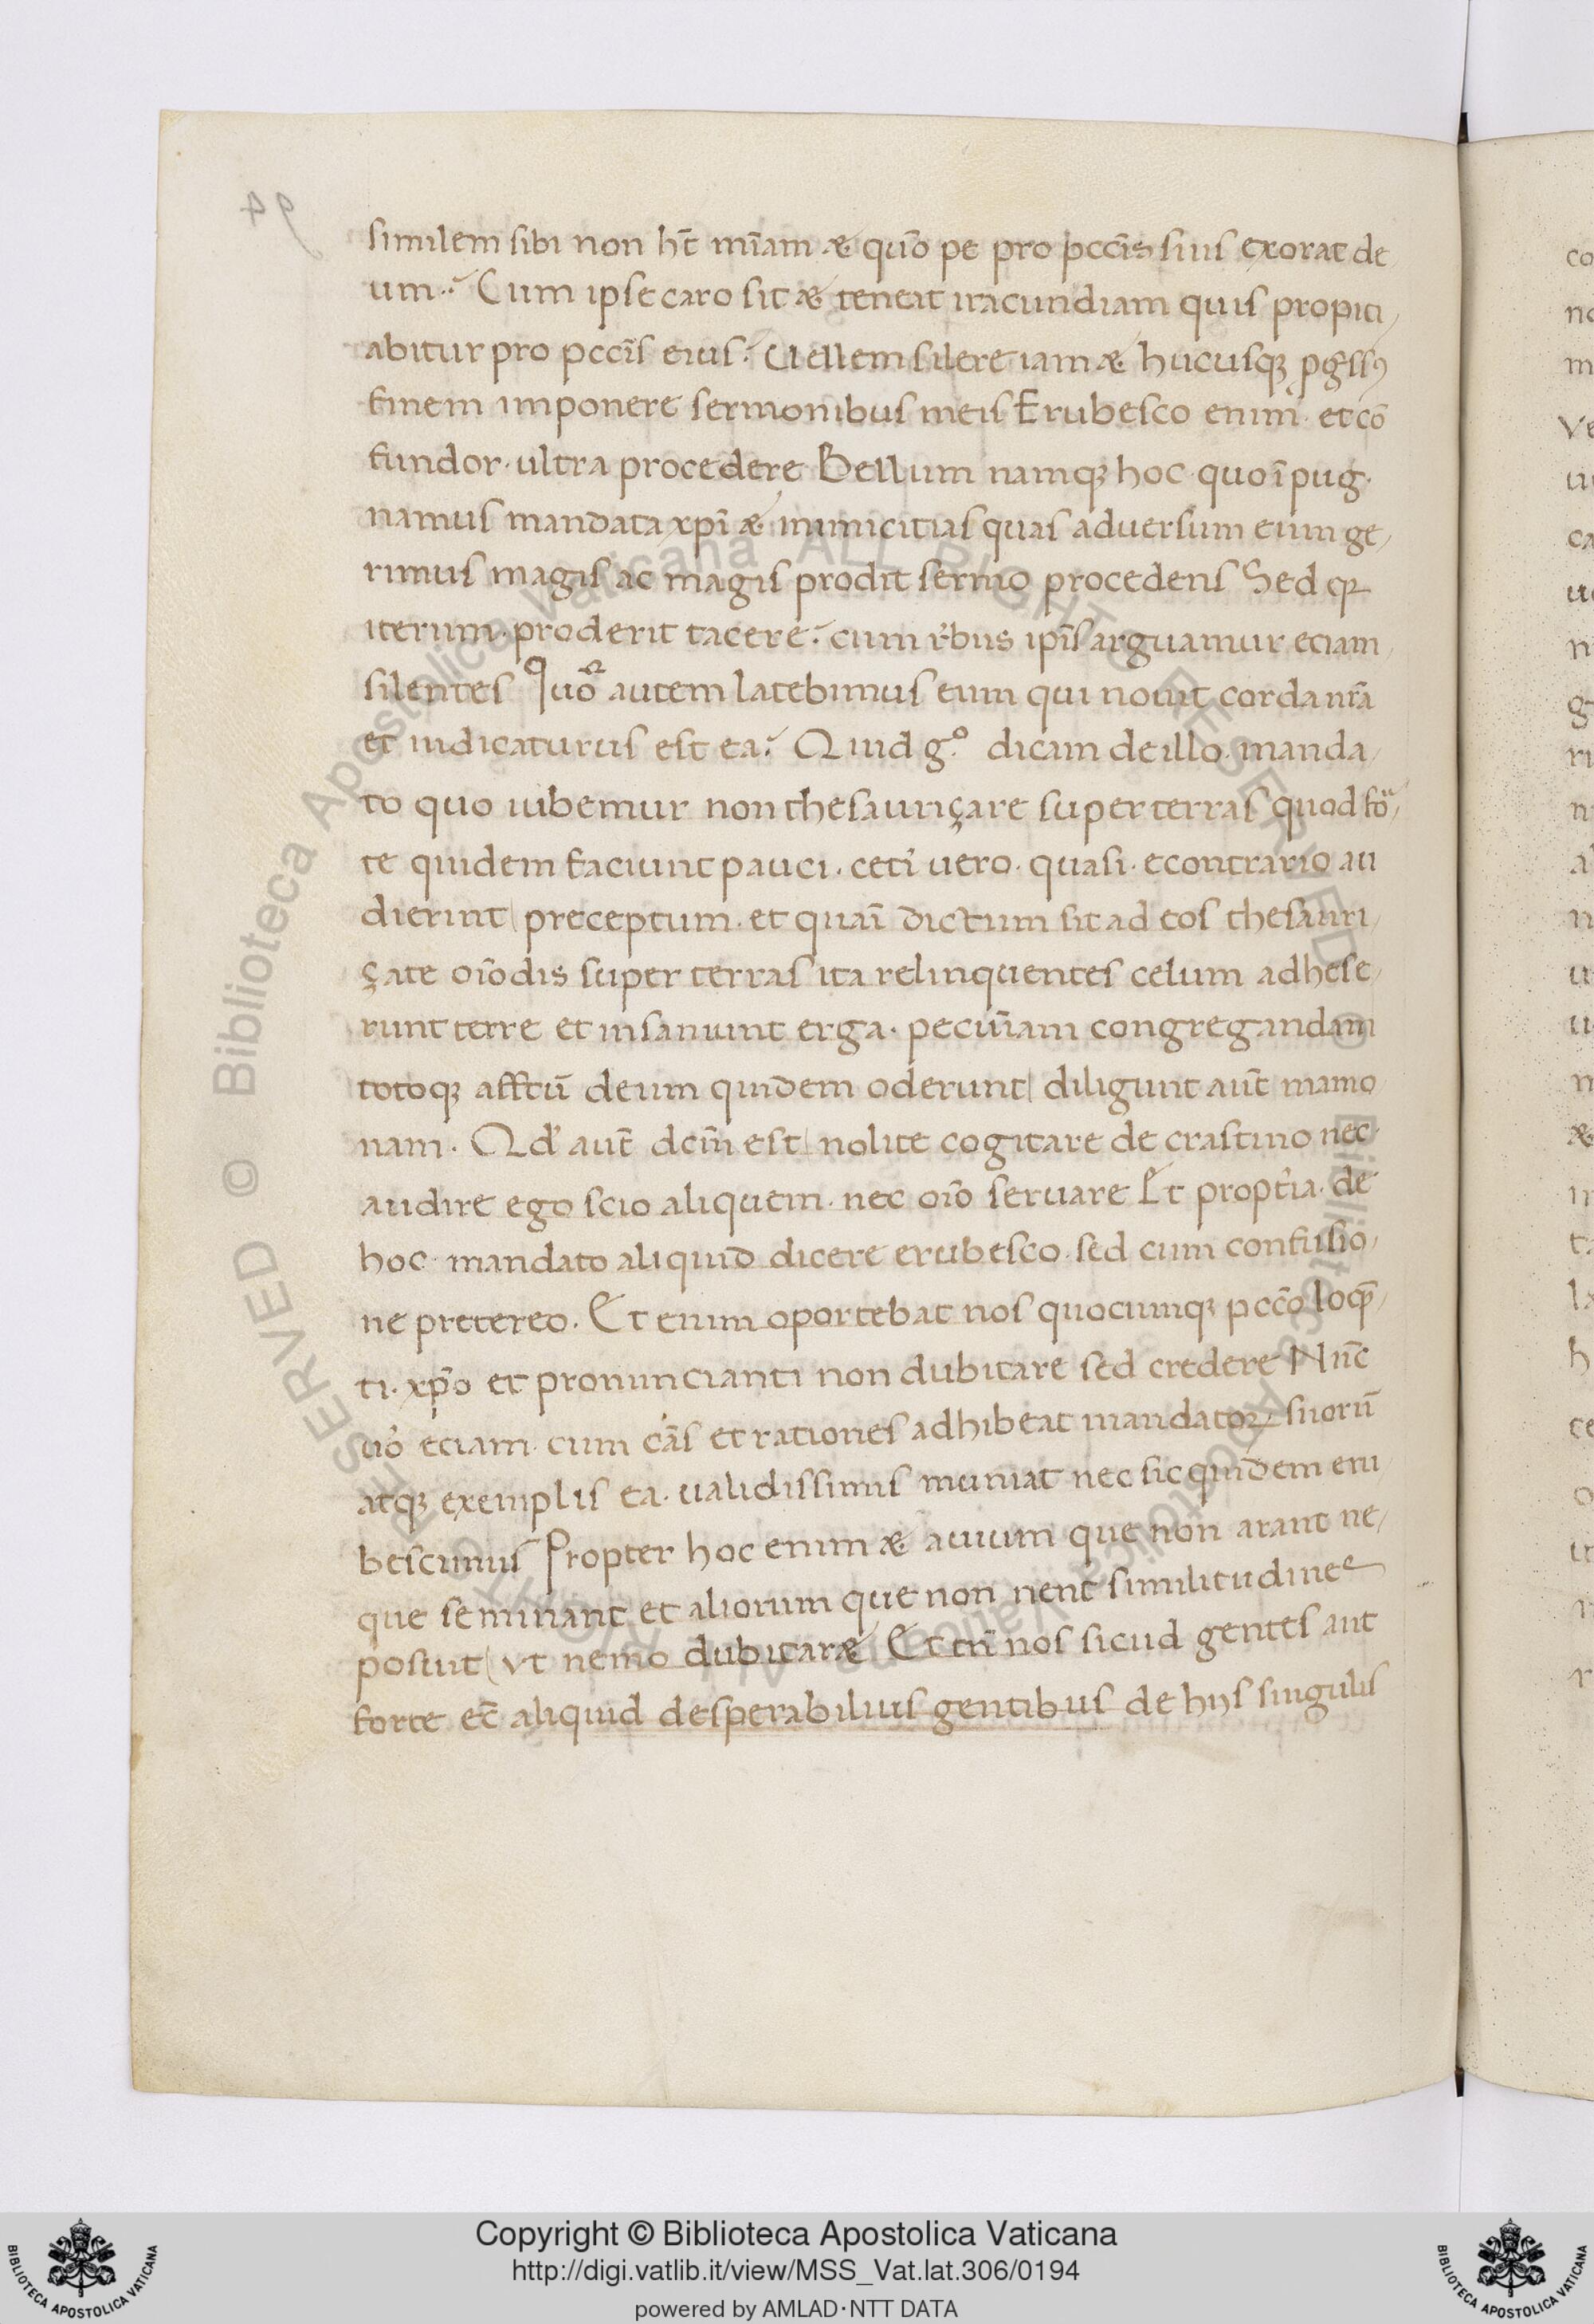 similem sibi non ht̄ mīam æ quō pe pro pccīs suis exorat de
um? Cum ipse caro sit æ teneat iracundiam quis propici
abitur pro pccīs eius? Uellem silere iam æ hucusqꝫ ꝓgssꝰ
finem imponere sermonibus meis Erubesco enim. et cō
fundor. ultra procedere Bellum namqꝫ hoc quo īpug
namus mandata xpī æ inimicitias quas adversum eum ge
rimus magis ac magis prodit sermo procedens Sed qꝫ
iterum proderit tacere? cum rꝰbus ip̄is arguamur eciam
silentes Quō autem latebimus eum qui novit corda nr̄a
et iudicaturus est ea? Quid g.º dicam de illo manda
to quo iubemur non thesauriçare super terras quod for
te quidem faciunt pauci. cetī uero. quasi. econtrario au
dierint preceptum. et quaī dictum sit ad eos thesauri
çate oīodis super terras ita relinquentes celum adhese
runt terre et insaniunt erga. pecūiam congregandam
totoqꝫ affctū deum quidem oderunt diligunt aut̄ mamo
nam. Qd' aut̄ dcm̄ est nolite cogitare de crastino nec
audire ego scio aliquem. nec oīo seruare Et propt̄ia. de
hoc mandato aliquid dicere erubesco. sed cum confusio
ne pretereo. Et enim oportebat nos quocumqꝫ pccō loqn̄
ti. xpō et pronuncianti non dubitare sed credere Nūc
uº eciam. cum cās et rationes adhibeat mandatoꝝ suorū
atqꝫ exemplis ea. ualidissimis muniat nec sic quidem eru
bescimus Propter hoc enim æ auium que non arant ne
que seminant et aliorum que non nent similitudine
posuit ut nemo dubitaræ Et tn̄ nos sicud gentes aut
forte ec̄ aliquid desperabilius gentibus de hijs singulis
94
Copyright © Biblioteca Apostolica Vaticana
http://digi.vatlib.it/view/MSS_Vat.lat.306/0194
powered by AMLAD·NTT DATA
BIBLIOTECA APOSTOLICA VATICANA
BIBLIOTECA APOSTOLICA VATICANA